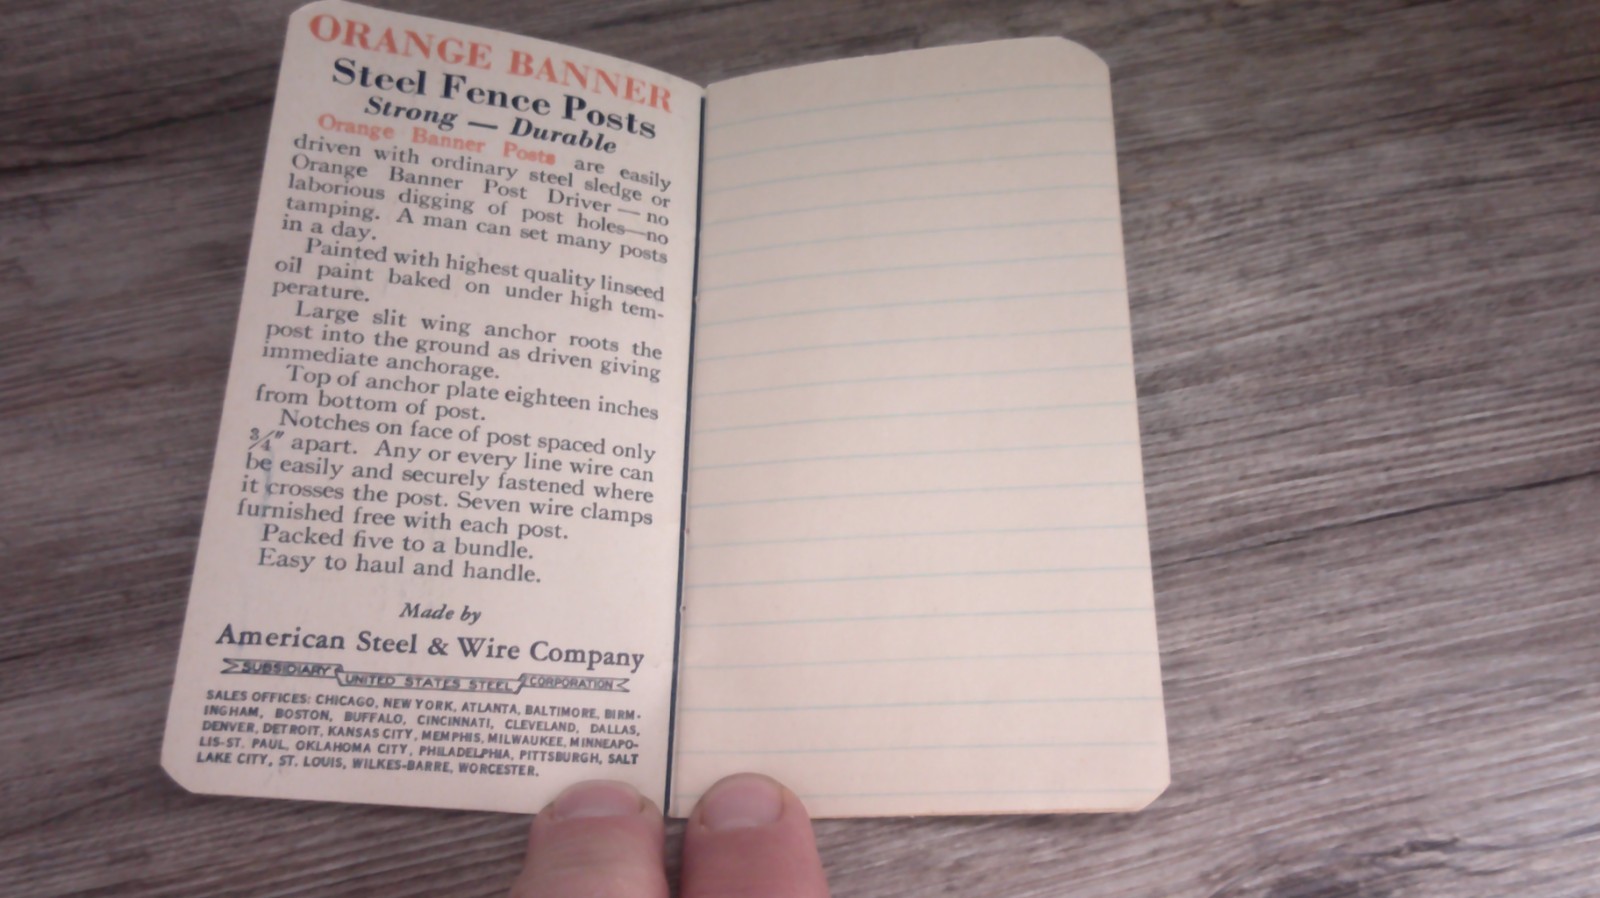 ORANGE BANNER
Steel Fence Posts
Strong — Durable
Orange Banner Posts are easily
driven with ordinary steel sledge or
Orange Banner Post Driver — no
laborious digging of post holes—no
tamping. A man can set many posts
in a day.
Painted with highest quality linseed
oil paint baked on under high tem-
perature.
Large slit wing anchor roots the
post into the ground as driven giving
immediate anchorage.
Top of anchor plate eighteen inches
from bottom of post.
Notches on face of post spaced only
¾″ apart. Any or every line wire can
be easily and securely fastened where
it crosses the post. Seven wire clamps
furnished free with each post.
Packed five to a bundle.
Easy to haul and handle.
Made by
American Steel & Wire Company
SUBSIDIARY UNITED STATES STEEL CORPORATION
SALES OFFICES: CHICAGO, NEW YORK, ATLANTA, BALTIMORE, BIRM-
INGHAM, BOSTON, BUFFALO, CINCINNATI, CLEVELAND, DALLAS,
DENVER, DETROIT, KANSAS CITY, MEMPHIS, MILWAUKEE, MINNEAPO-
LIS-ST. PAUL, OKLAHOMA CITY, PHILADELPHIA, PITTSBURGH, SALT
LAKE CITY, ST. LOUIS, WILKES-BARRE, WORCESTER.